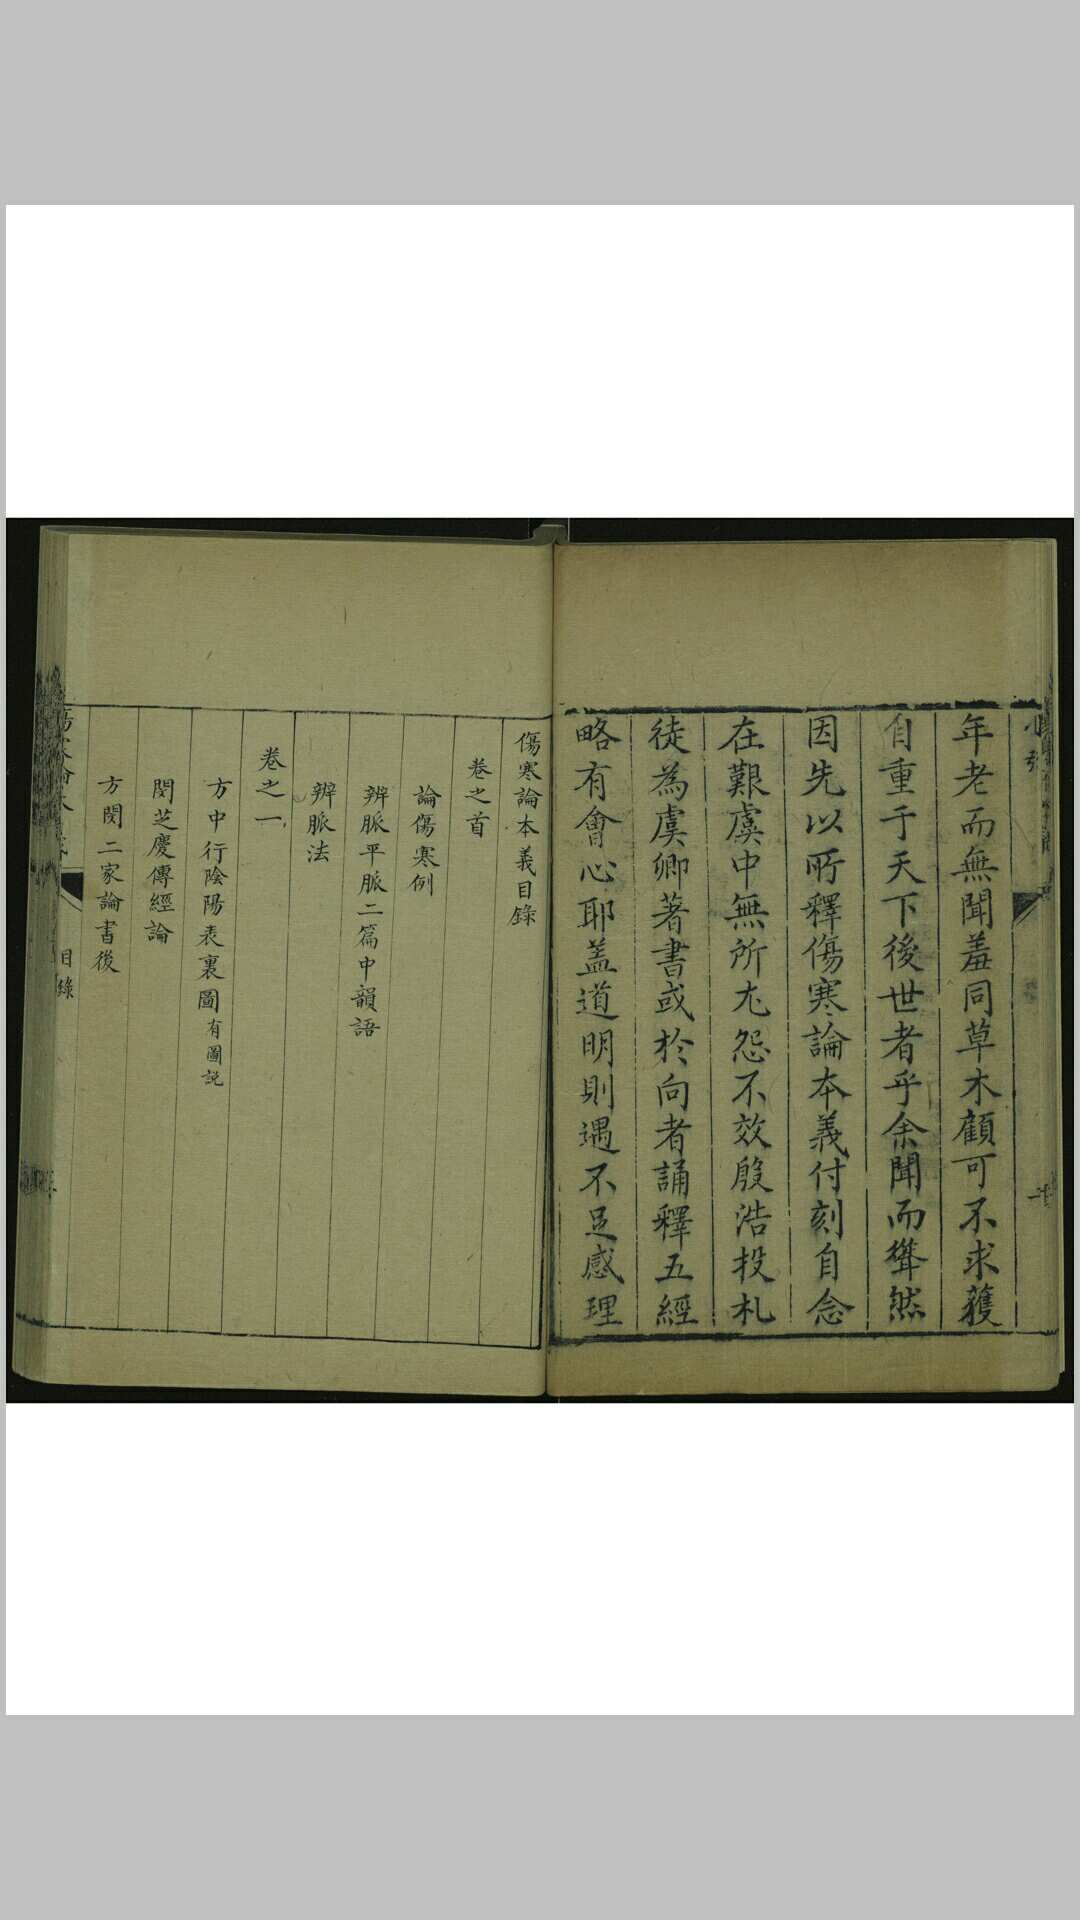 年老而無聞羞同草木顧可不求獲
自重于天下後世者乎余聞而聳然
因先以所釋傷寒論本義付刻自念
在艱虞中無所尤怨不效殷浩投札
徒為虞卿著書或於向者誦釋五經
略有會心耶蓋道明則遇不足感理
傷寒論本義目錄
卷之首
論傷寒例
辨脈平脈二篇中韻語
辨脈法
卷之一
方中行陰陽表裏圖有圖說
閔芝慶傳經論
方閔二家論書後
目錄